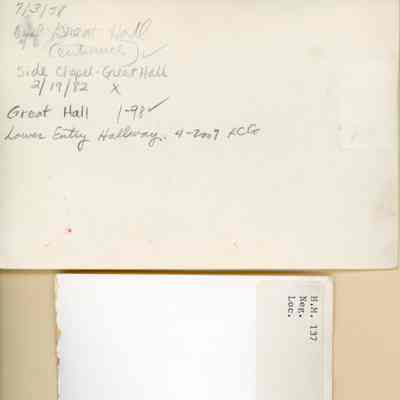 7/3/58
Great Hall
(entrance) ✓
Side Chapel-Great Hall
2/19/82 X
Great Hall 1-98 ✓
Lower Entry Hallway. 4-2009
H.M. 137
Neg.
Loc.